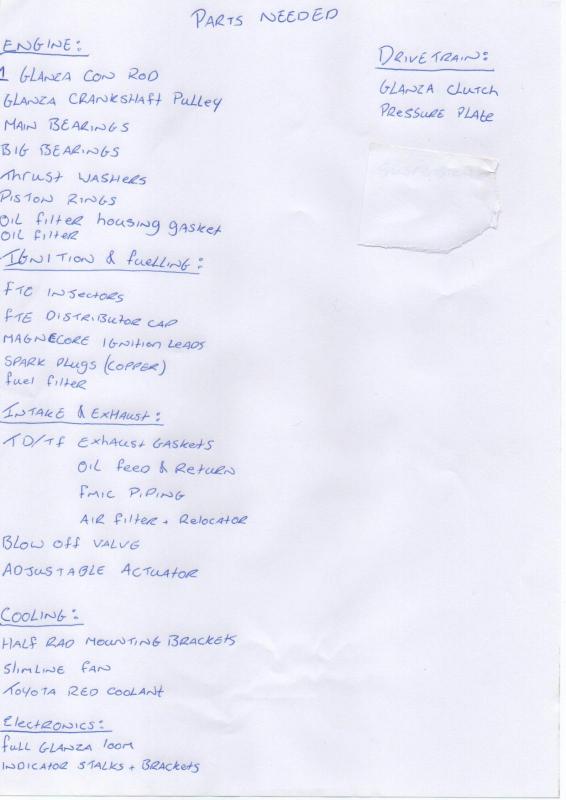 PARTS NEEDED
ENGINE:
1 GLANZA CON ROD
GLANZA CRANKSHAFT PULLEY
MAIN BEARINGS
BIG BEARINGS
THRUST WASHERS
PISTON RINGS
OIL FILTER HOUSING GASKET
OIL FILTER
IGNITION & FUELLING:
FTO INJECTORS
FTE DISTRIBUTOR CAP
MAGNECORE IGNITION LEADS
SPARK PLUGS (COPPER)
FUEL FILTER
INTAKE & EXHAUST:
TD/TF EXHAUST GASKETS
OIL FEED & RETURN
FMIC PIPING
AIR FILTER + RELOCATOR
BLOW OFF VALVE
ADJUSTABLE ACTUATOR
COOLING:
HALF RAD MOUNTING BRACKETS
SLIMLINE FAN
TOYOTA RED COOLANT
ELECTRONICS:
FULL GLANZA LOOM
INDICATOR STALKS + BRACKETS
DRIVETRAIN:
GLANZA CLUTCH
PRESSURE PLATE